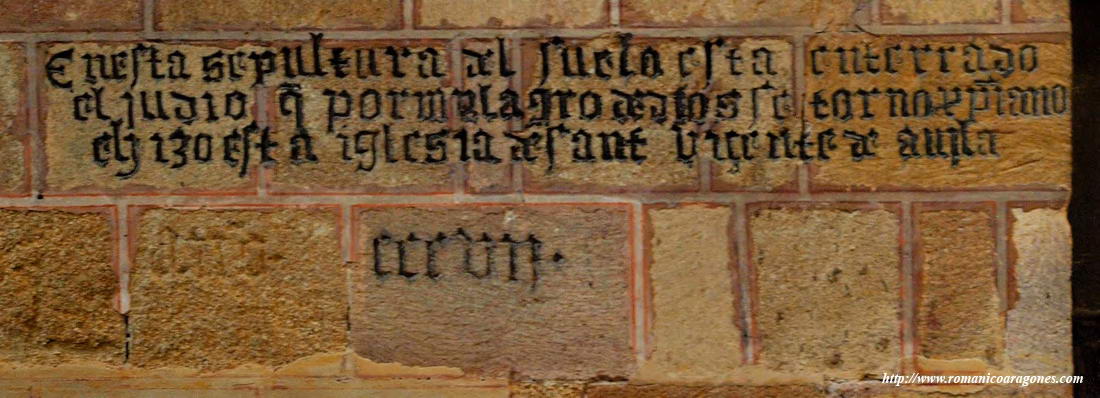 Enesta sepultura del suelo esta enterrado
el judio q̃ por milagro de dios se torno xp̃iano
e hizo esta iglesia de sant viçente de auila
cccvii.
http://www.romanicoaragones.com